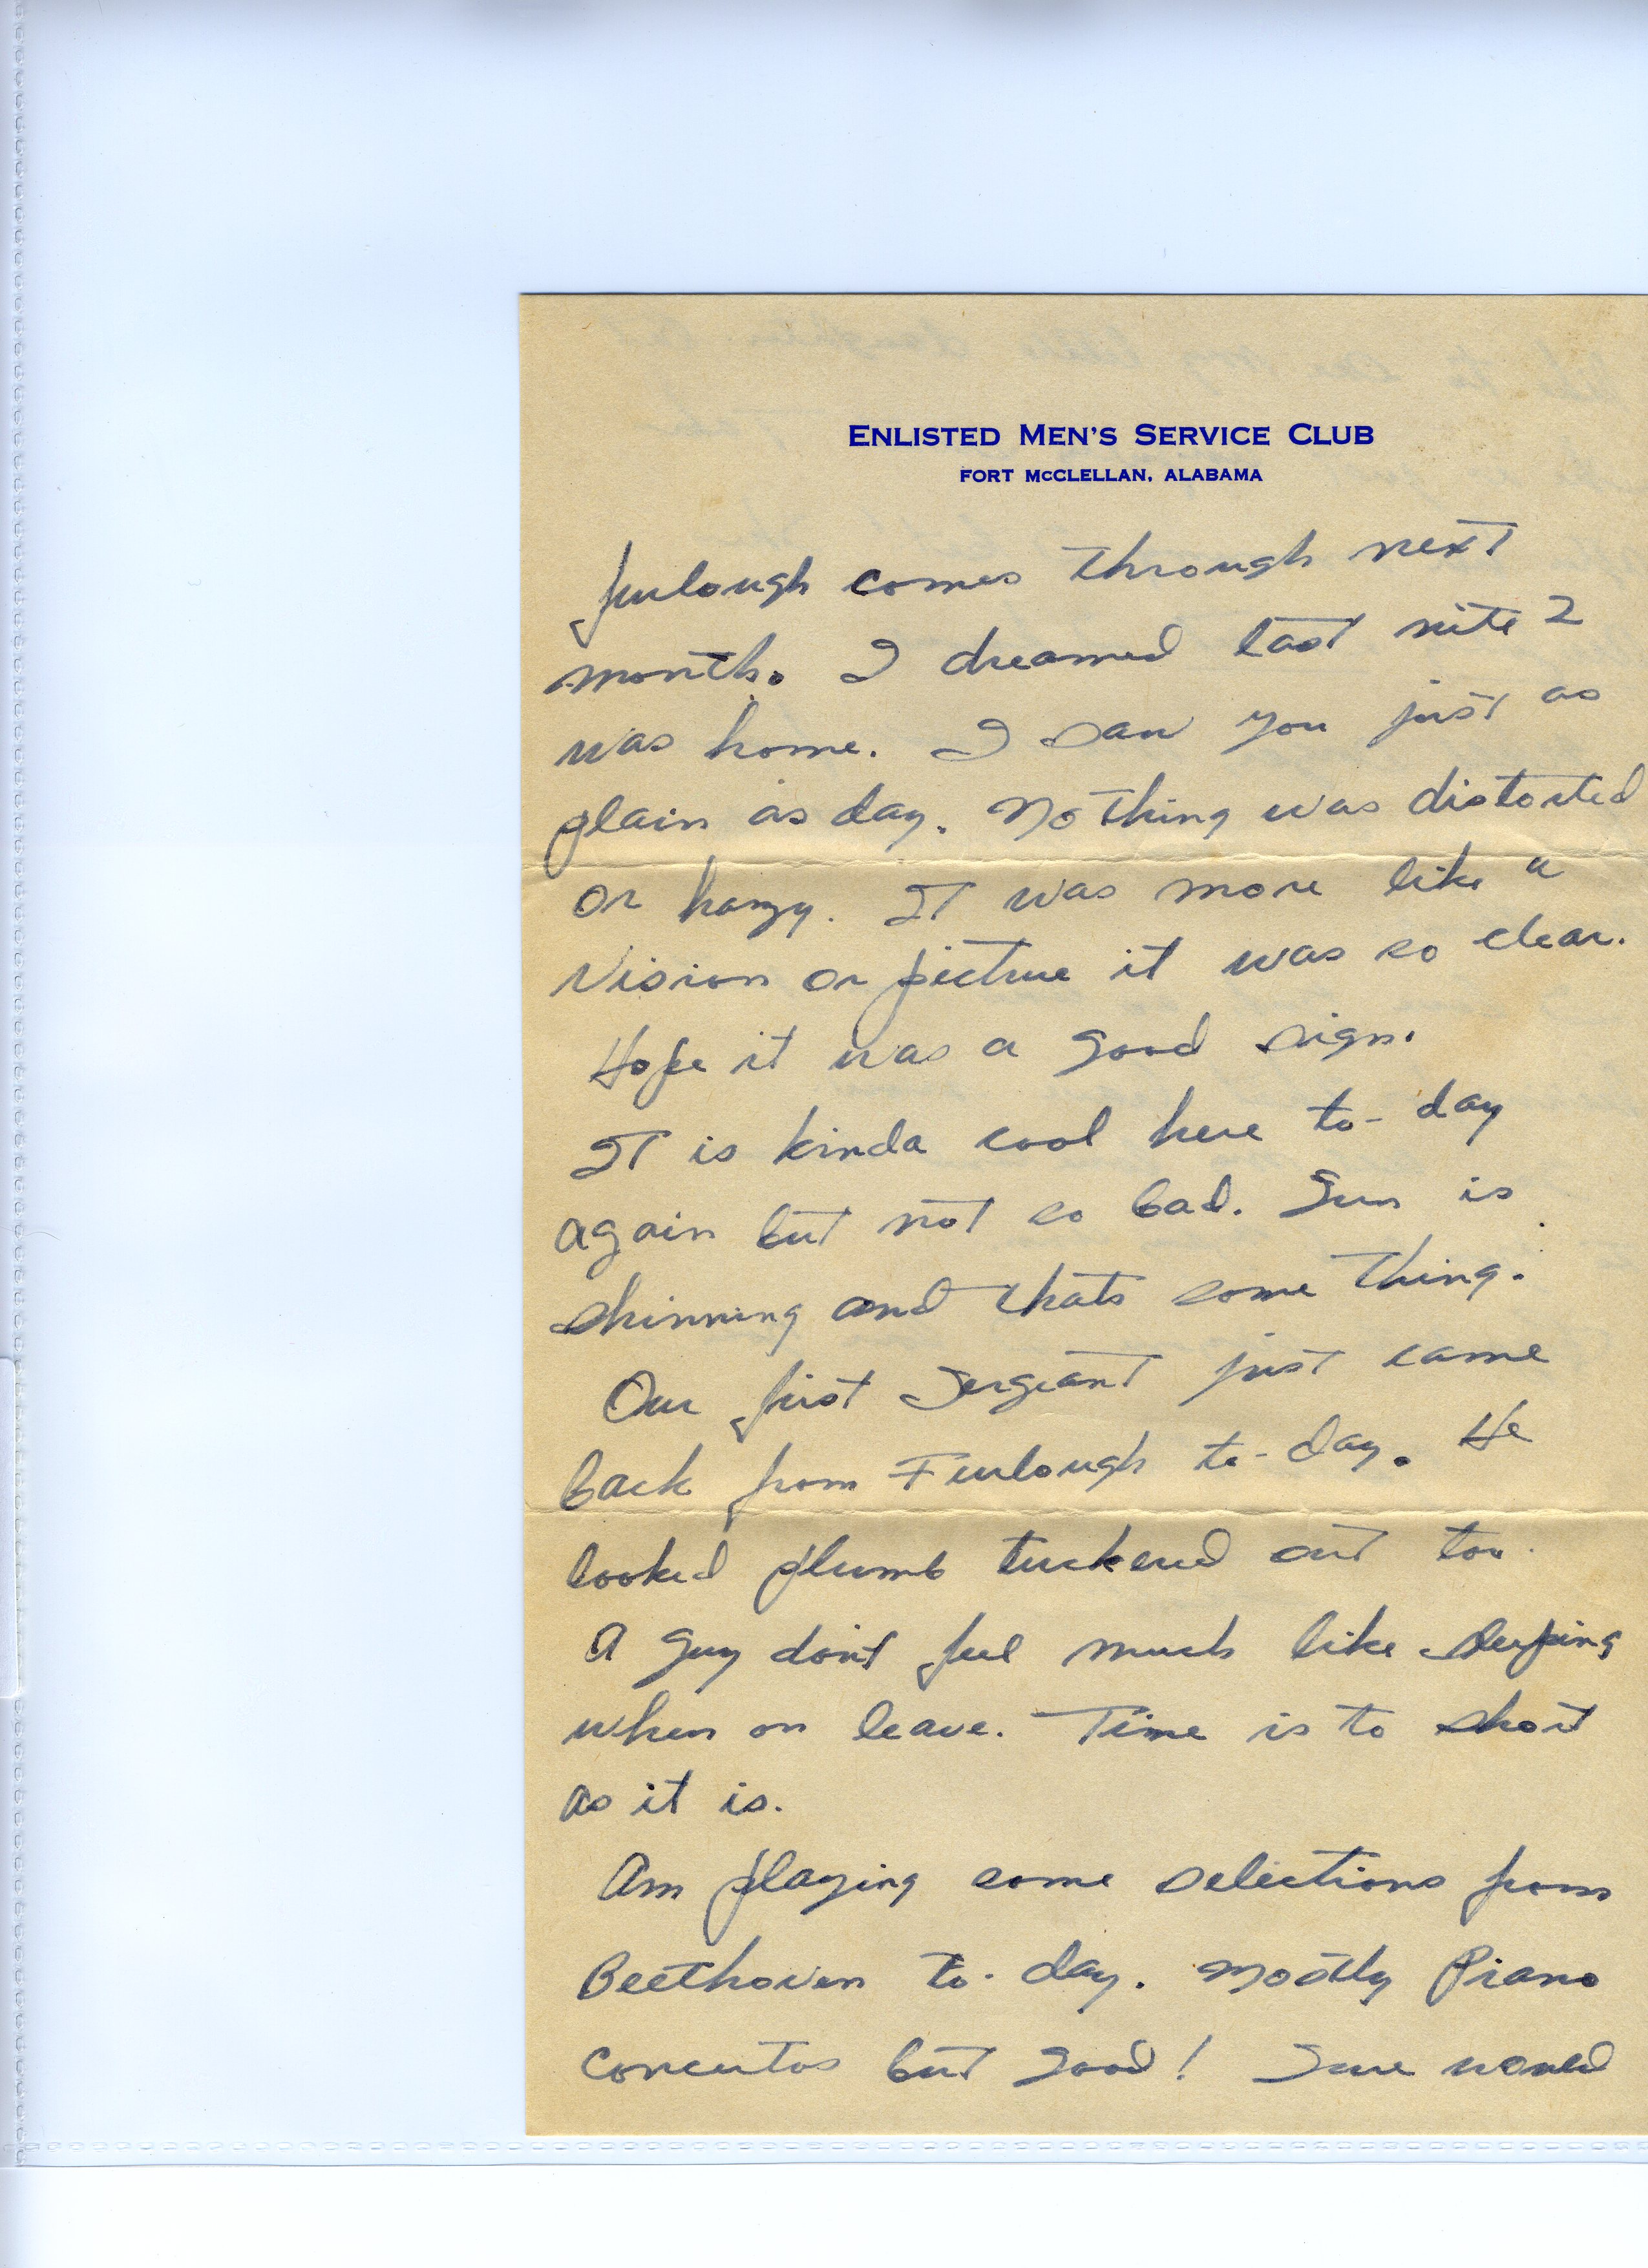 ENLISTED MEN'S SERVICE CLUB
FORT McCLELLAN, ALABAMA
furlough comes through next
month. I dreamed last nite I
was home. I saw you just as
plain as day. Nothing was distorted
or hazy. It was more like a
vision or picture it was so clear.
Hope it was a good sign.
It is kinda cool here to-day
again but not so bad. Sun is
shinning and thats some thing.
Our first Sergeant just came
back from Furlough to-day. He
looked plumb tuckered out too.
A guy dont feel much like sleeping
when on leave. Time is to short
as it is.
Am playing some selections from
Beethoven to-day. Mostly Piano
concertos but good! Sure would